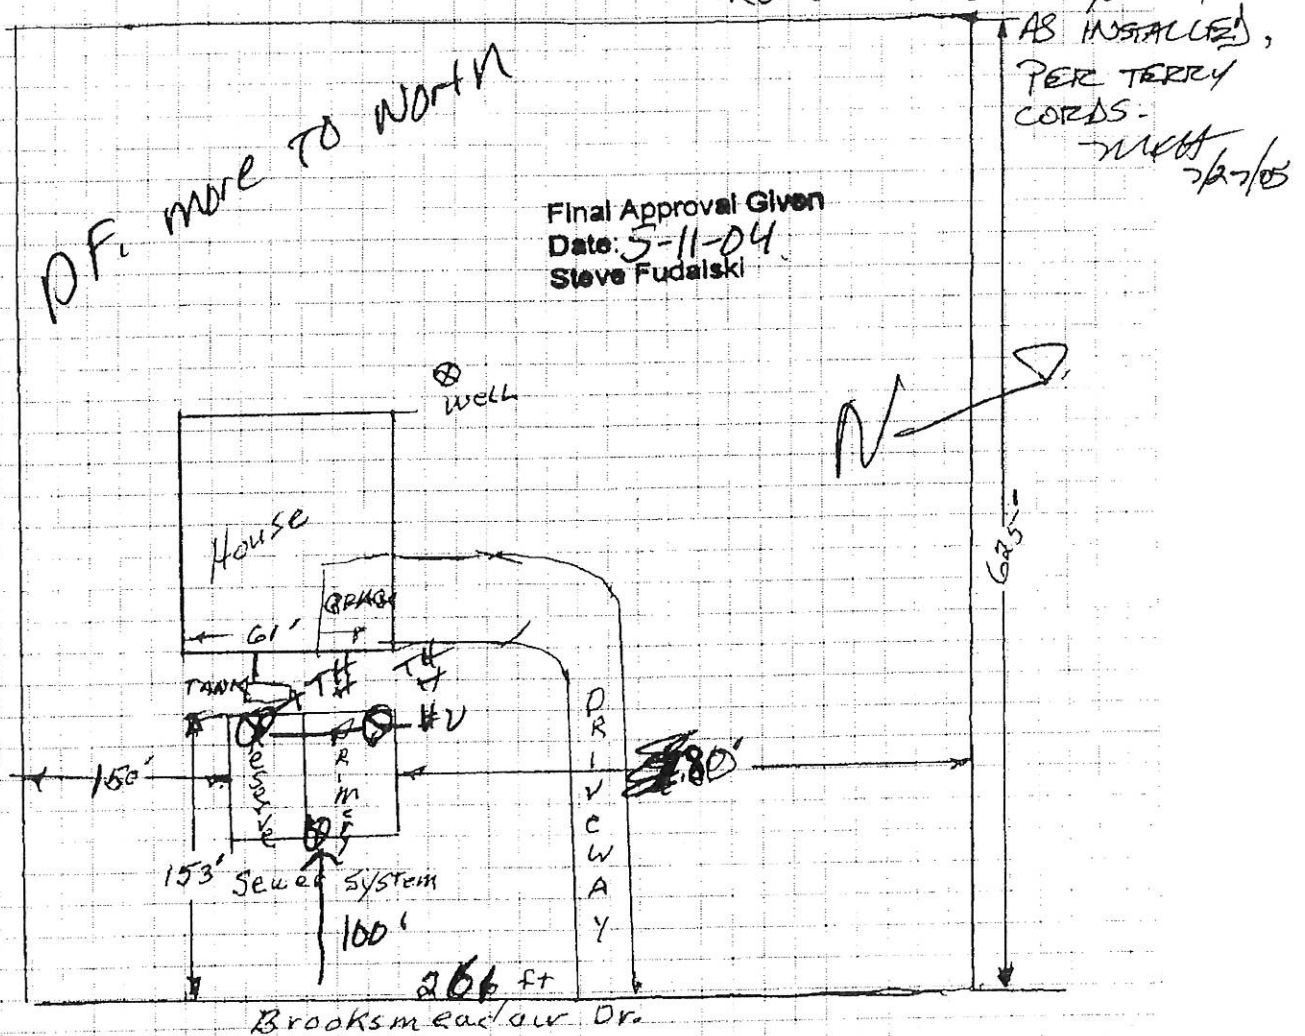 AS INSTALLED,
PER TERRY
CORDS-
7/27/05
DF. more TO North
Final Approval Given
Date: 5-11-04
Steve Fudalski
well
N
House
GARAGE
61'
TANK
TH
TH
#2
Reserve
PRIMERY
150'
80'
625-
DRIVEWAY
153'
Sewer System
100'
266 ft
Brooksmeadow Dr.